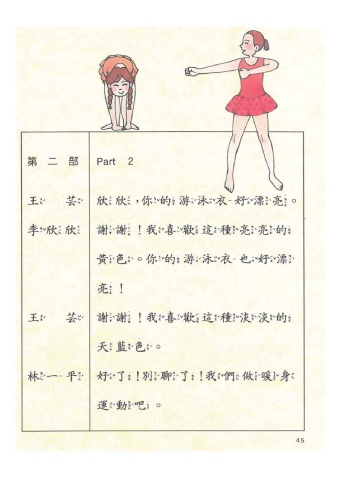 第二部 Part 2
王芸 欣欣，你的游泳衣好漂亮。
李欣欣 謝謝！我喜歡這種亮亮的
黃色。你的游泳衣也好漂
亮！
王芸 謝謝！我喜歡這種淡淡的
天藍色。
林一平 好了！別聊了！我們做暖身
運動吧。
45